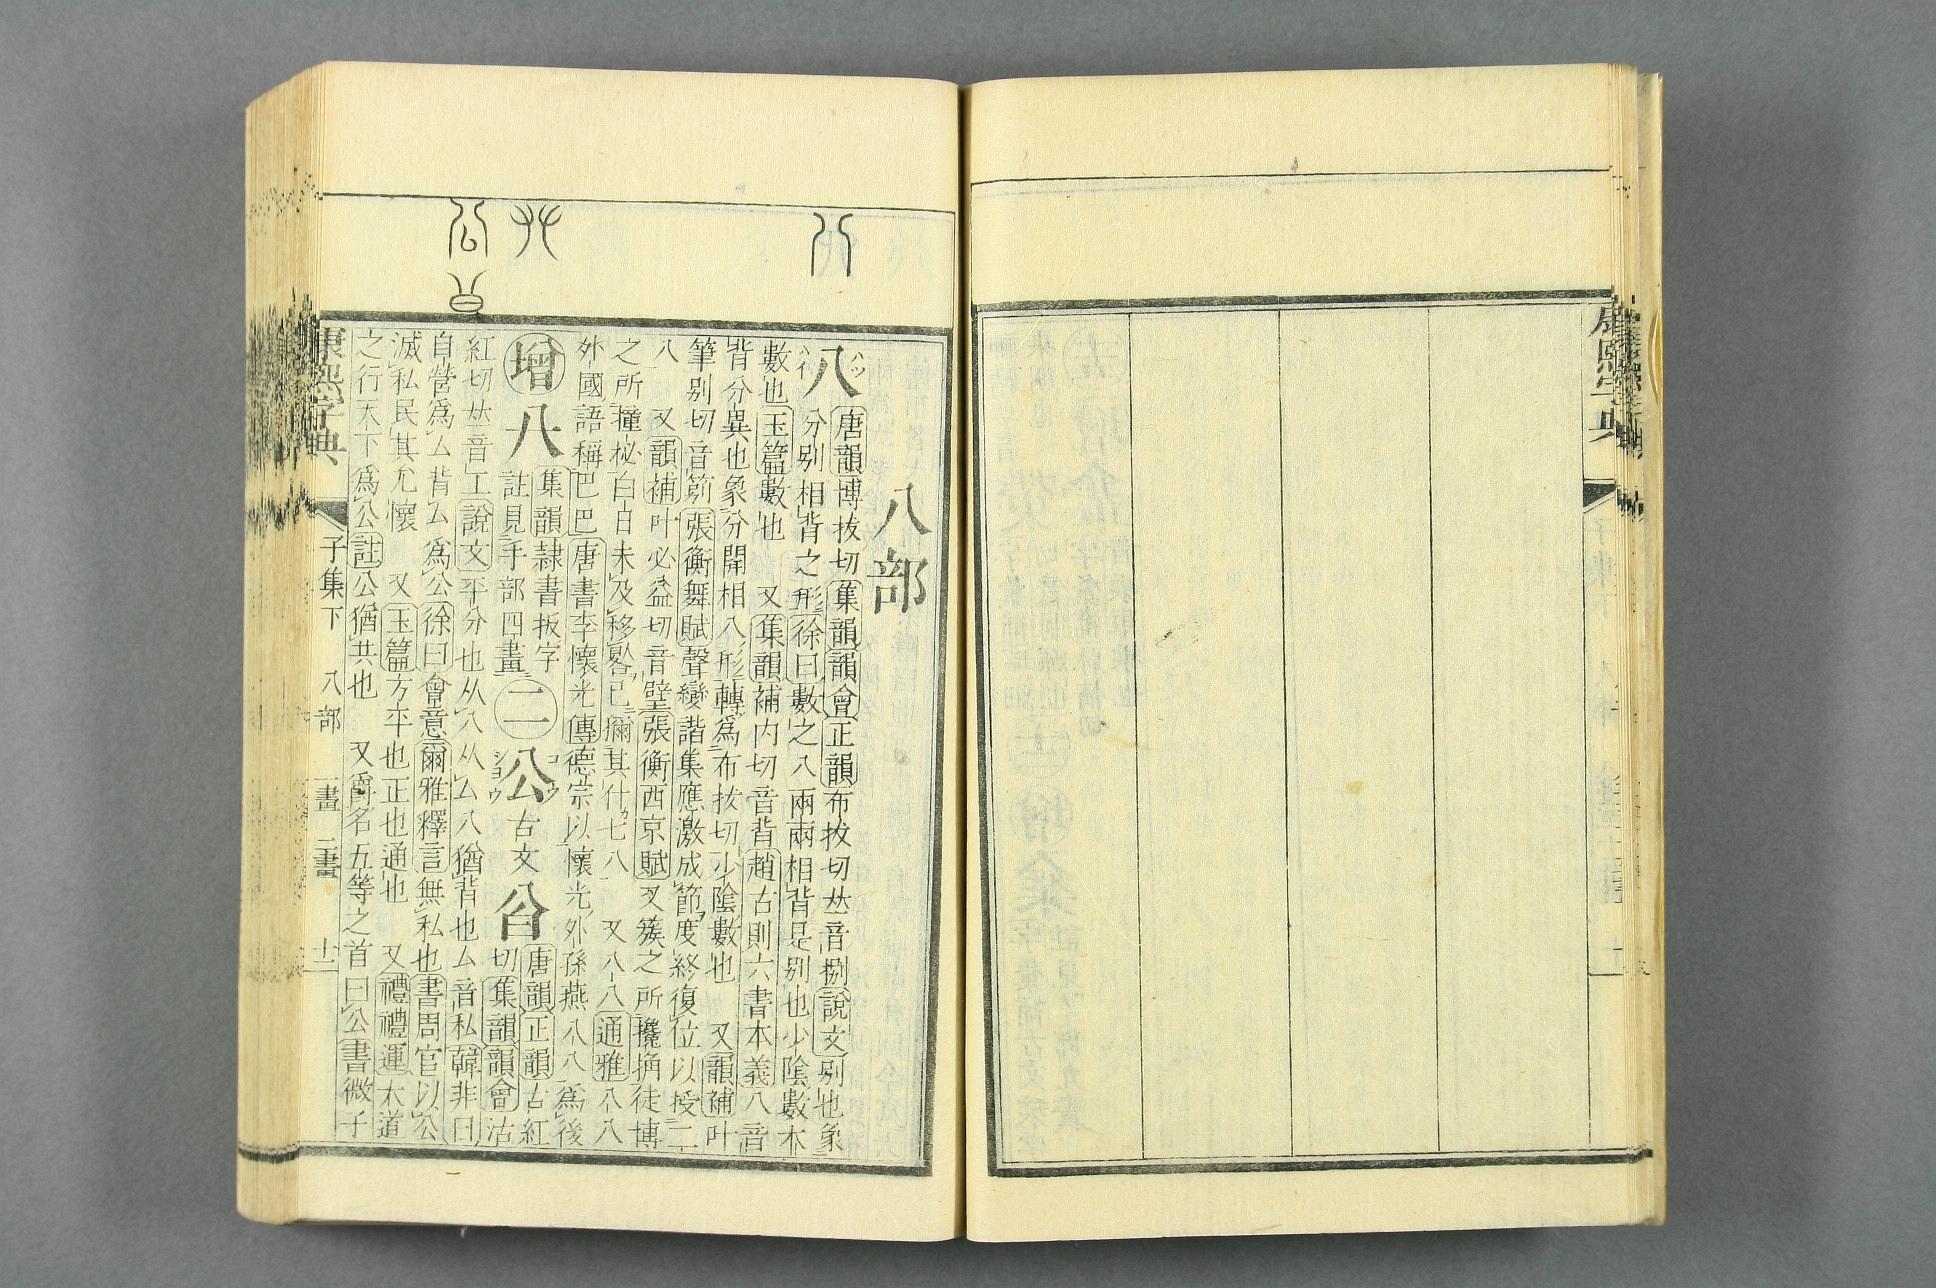 八部
八 ハツ 唐韻博拔切集韻韻會正韻布拔切𠀤音捌說文別也象
ハ 分別相背之形徐曰數之八兩兩相背是別也少陰數木
數也玉篇數也 又集韻補內切音背趙古則六書本義八音
背分異也象分開相八形轉爲布拔切少陰數也 又韻補叶
筆別切音𥮾張衡舞賦聲變諧集應激成節度終復位以授二
八 又韻補叶必益切音壁張衡西京賦叉簇之所攙捔徒博
之所撞㧙白日未及移晷已獮其什七八 又八八通雅八八
外國語稱巴巴唐書李懷光傳德宗以懷光外孫燕八八爲後
增 𠔁 集韻隸書扳字
註見手部四畫 二 公 コウ ショウ 古文㕣 唐韻正韻古紅
切集韻韻會沽
紅切𠀤音工說文平分也从八从厶八猶背也厶音私韓非曰
自營爲厶背厶爲公徐曰會意爾雅釋言無私也書周官以公
滅私民其允懷 又玉篇方平也正也通也 又禮禮運大道
之行天下爲公註公猶共也 又爵名五等之首曰公書微子
康熙字典 子集下 八部 一畫 二畫 十二
康熙字典